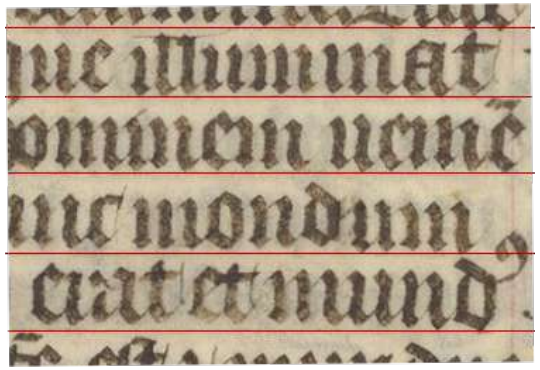 ue illuminat
ominem ueniē
unc mondum
erat et mundꝰ.